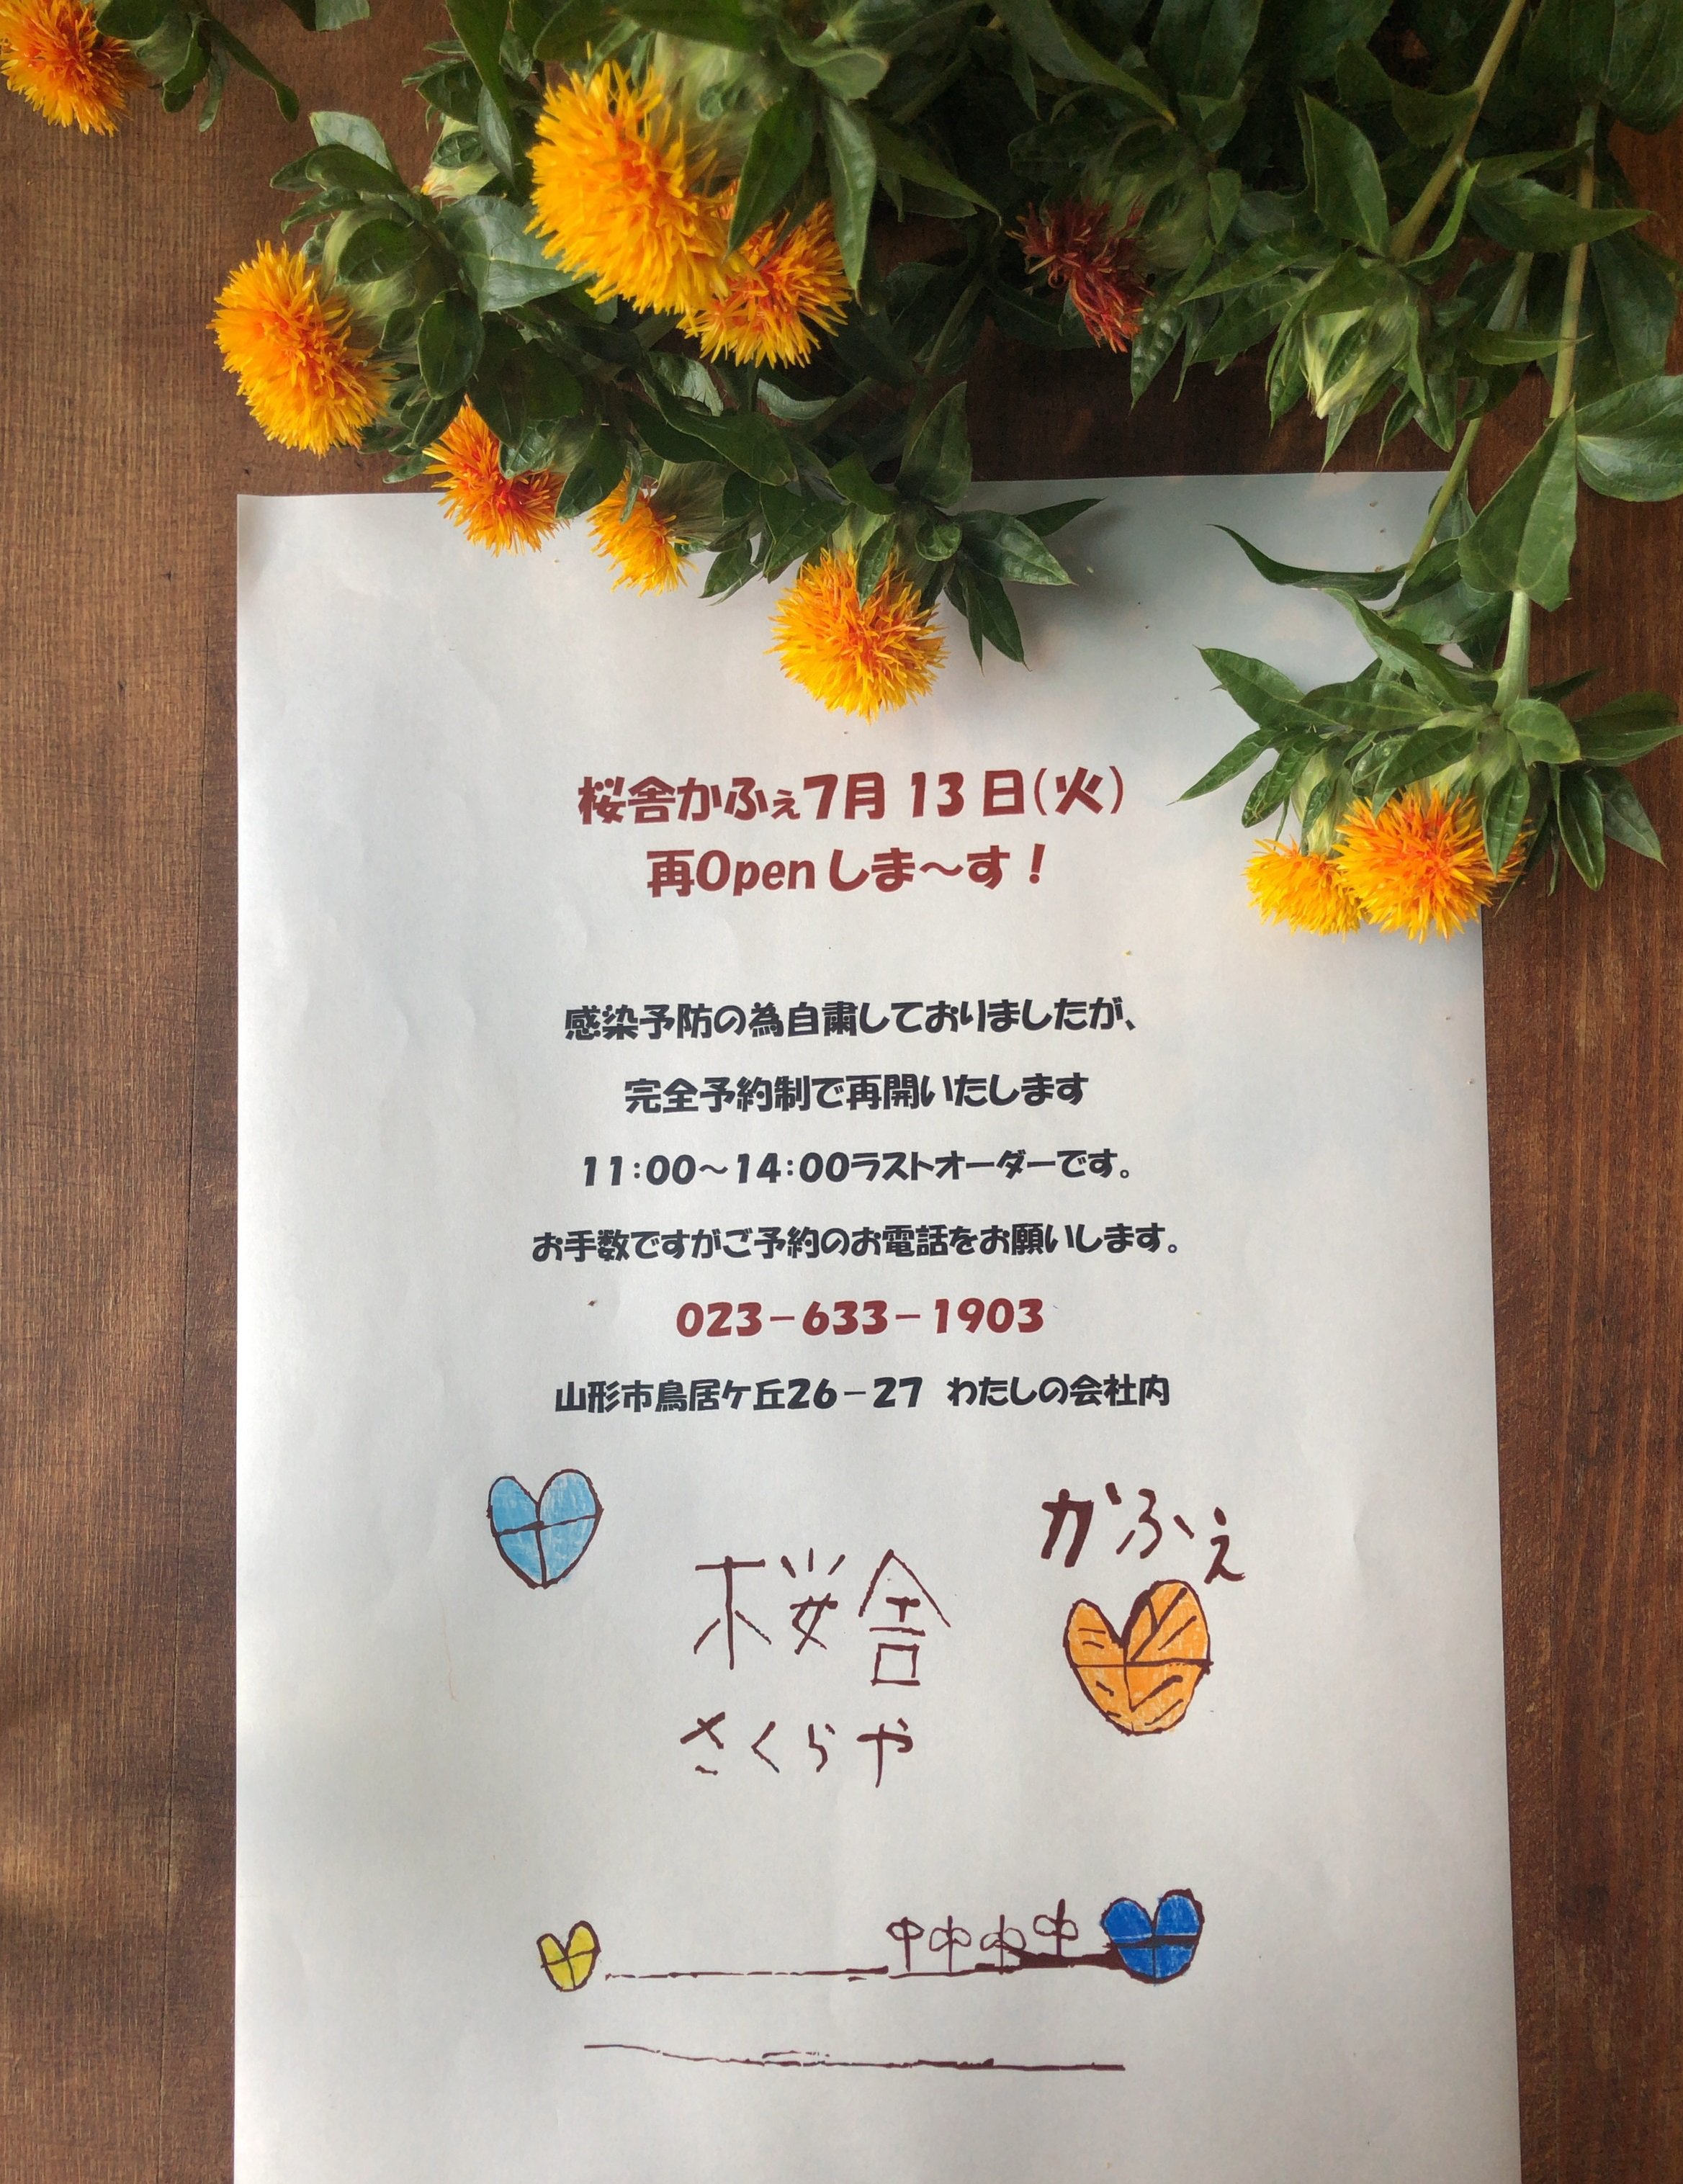 桜舎かふぇ7月 13 日(火)
再Openしま～す！
感染予防の為自粛しておりましたが、
完全予約制で再開いたします
11:00～14:00ラストオーダーです。
お手数ですがご予約のお電話をお願いします。
023－633－1903
山形市鳥居ケ丘26－27 わたしの会社内
かふぇ
桜舎
さくらや